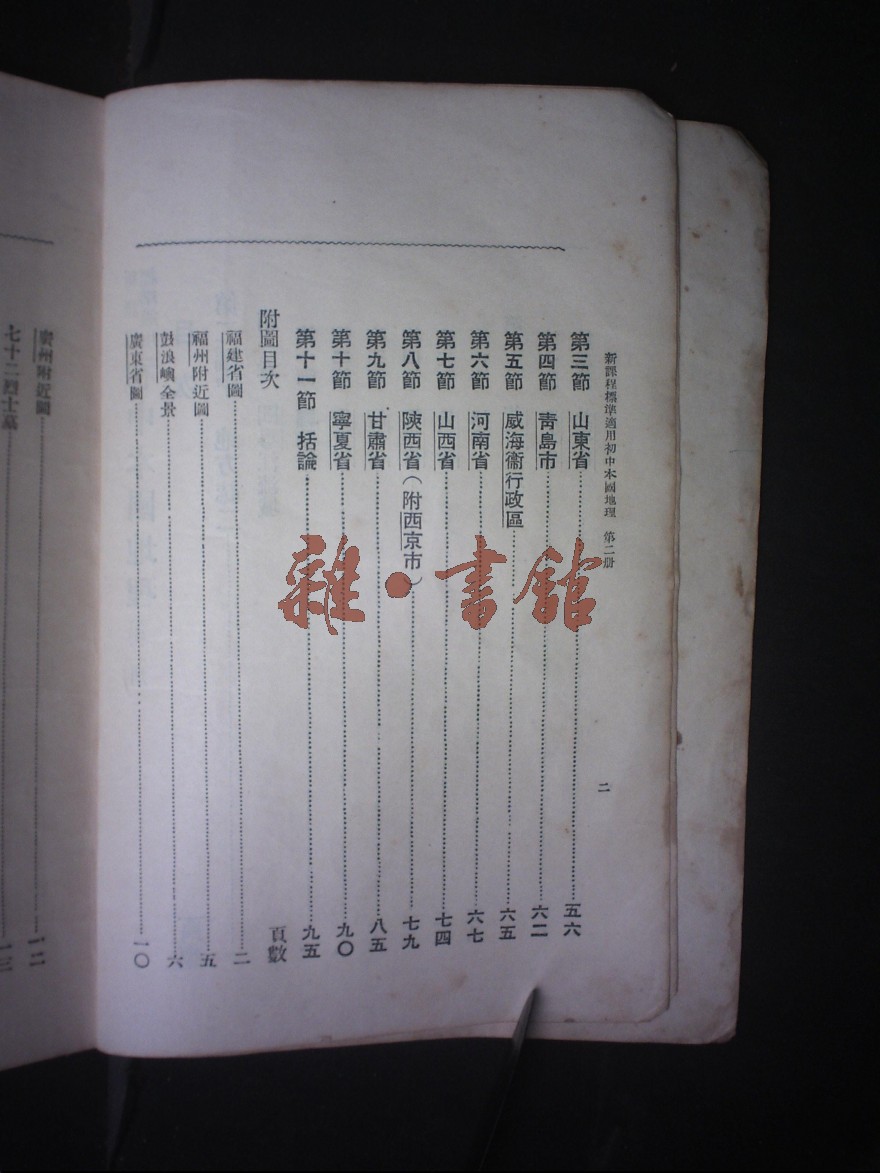 新課程標準適用初中本國地理 第二册
二
第三節 山東省……五六
第四節 靑島市……六二
第五節 威海衞行政區……六五
第六節 河南省……六七
第七節 山西省……七四
第八節 陝西省(附西京市)……七九
第九節 甘肅省……八五
第十節 寧夏省……九〇
第十一節 括論……九五
附圖目次 頁數
福建省圖……二
福州附近圖……五
鼓浪嶼全景……六
廣東省圖……一〇
廣州附近圖……一二
七十二烈士墓……一三
雜·書館